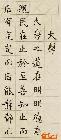 大學
大學之道在明明德在
親民在止於至善知止而
后有定定而后能靜靜